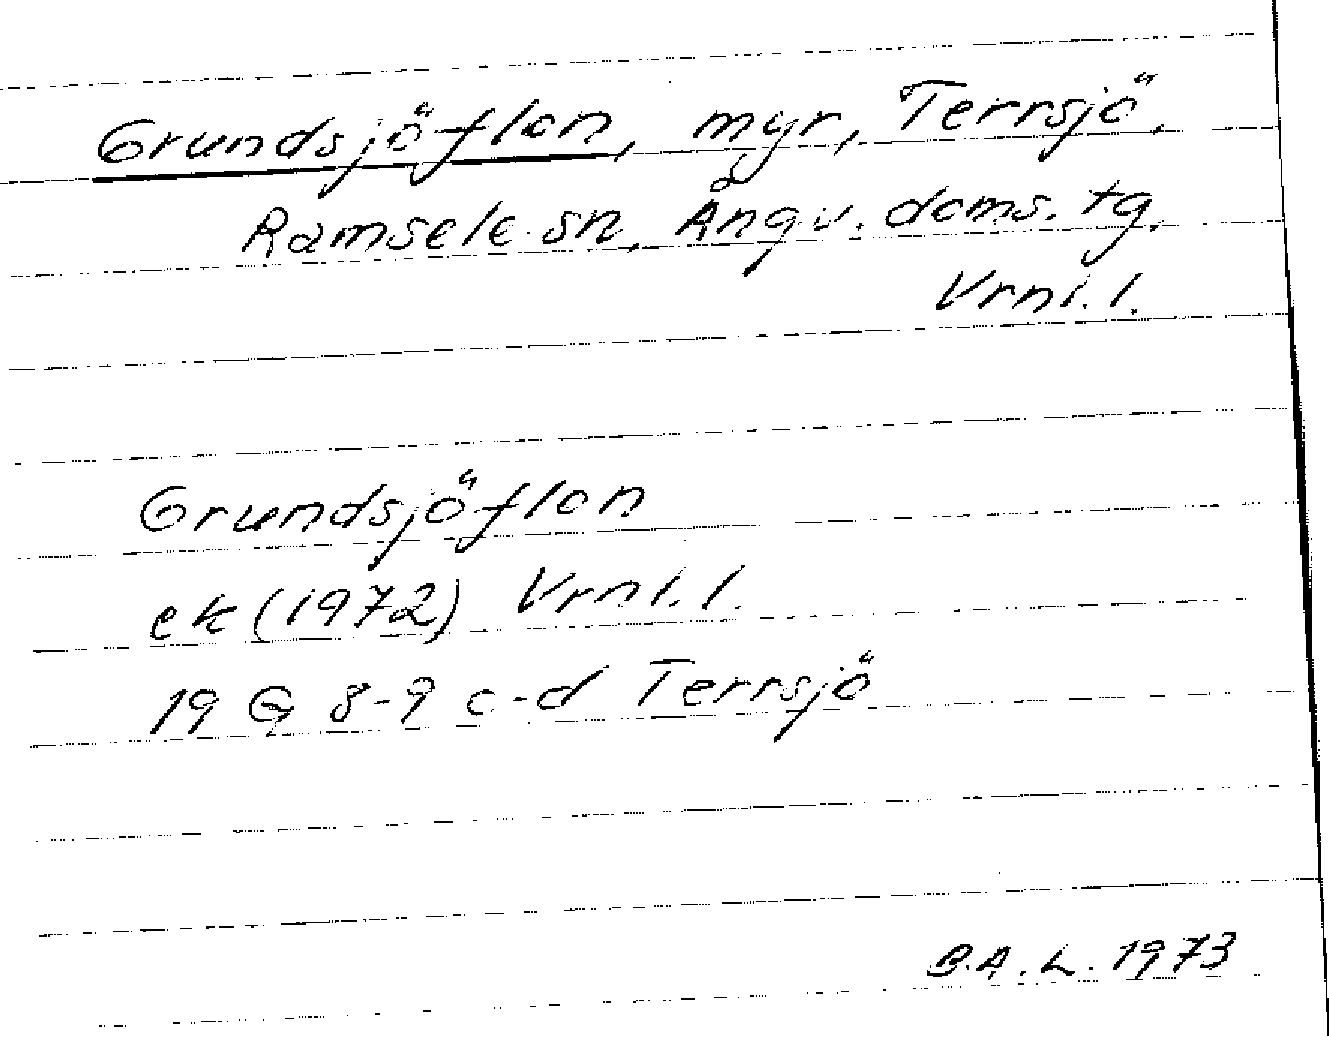 Grundsjöflon, myr, Terrsjö,
Ramsele sn, Ångv. doms. tg,
Vrnl. l.
Grundsjöflon
ek (1972) Vrnl. l.
19 G 8-9 c-d Terrsjö
B.A.L. 1973